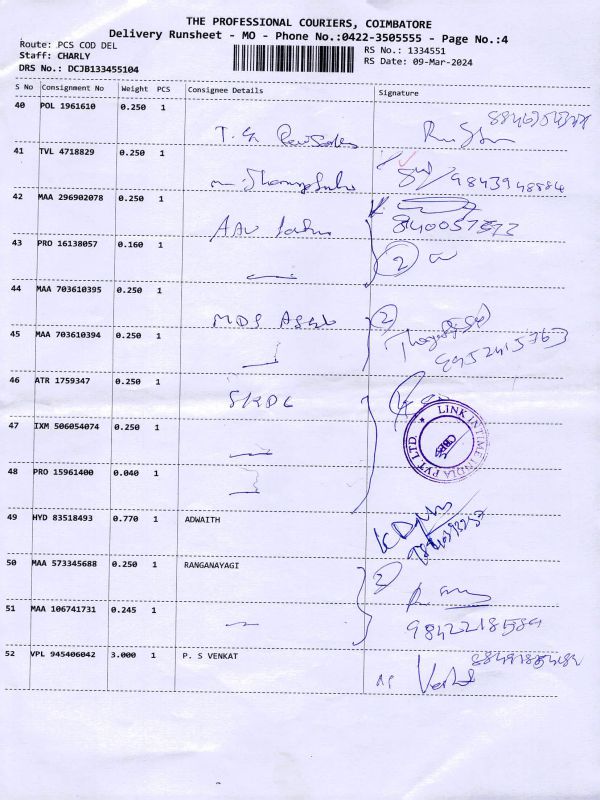 THE PROFESSIONAL COURIERS, COIMBATORE
Delivery Runsheet - MO - Phone No.:0422-3505555 - Page No.:4
Route: PCS COD DEL
Staff: CHARLY
DRS No.: DCJB133455104
RS No.: 1334551
RS Date: 09-Mar-2024
S No Consignment No Weight PCS Consignee Details Signature
40 POL 1961610 0.250 1
T. G
41 TVL 4718829 0.250 1
9843948884
42 MAA 296902078 0.250 1
43 PRO 16138057 0.160 1
2
44 MAA 703610395 0.250 1
MDS 2
45 MAA 703610394 0.250 1
9952415763
46 ATR 1759347 0.250 1
SKDC
LINK INTIME INDIA PVT. LTD.
47 IXM 506054074 0.250 1
48 PRO 15961400 0.040 1
49 HYD 83518493 0.770 1 ADWAITH
50 MAA 573345688 0.250 1 RANGANAYAGI
2
51 MAA 106741731 0.245 1
9842218589
52 VPL 945406042 3.000 1 P. S VENKAT